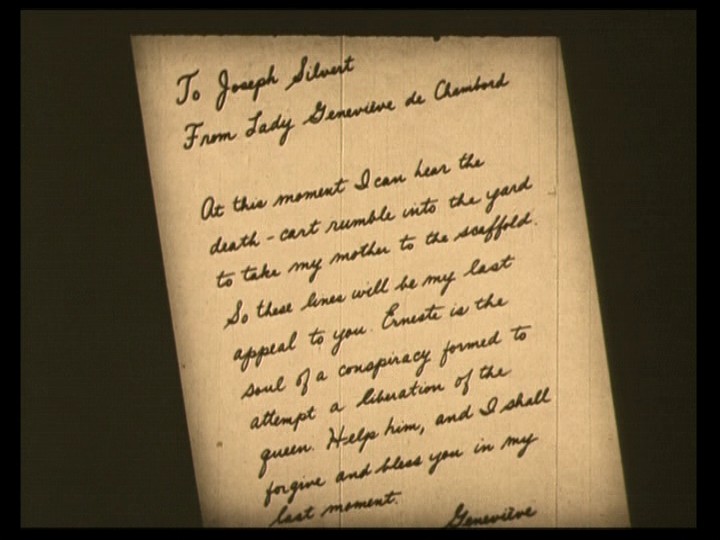 To Joseph Silvert
From Lady Geneviève de Chambord
At this moment I can hear the
death-cart rumble into the yard
to take my mother to the scaffold.
So these lines will be my last
appeal to you. Erneste is the
soul of a conspiracy formed to
attempt a liberation of the
queen. Help him, and I shall
forgive and bless you in my
last moment.
Geneviève